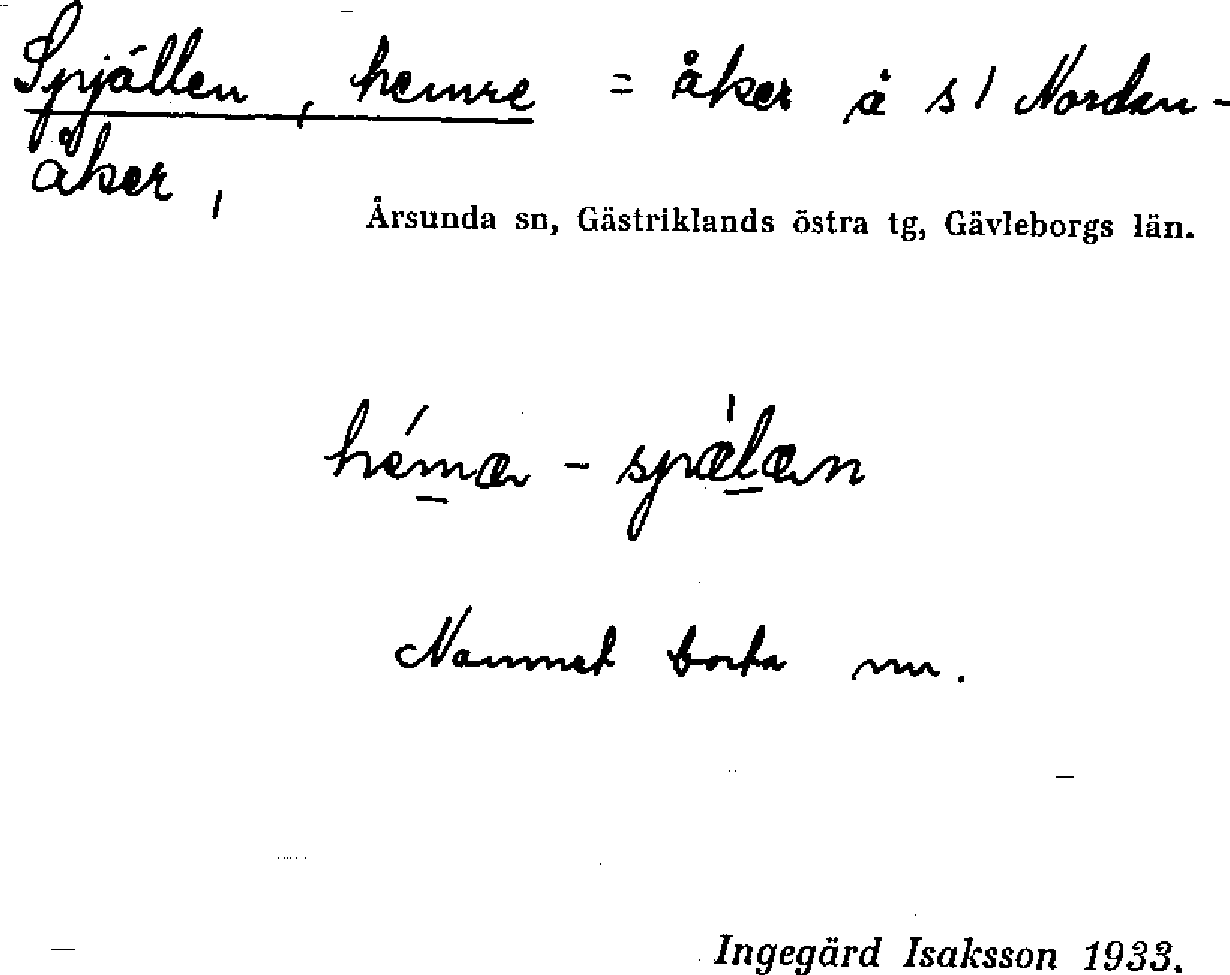 Spjällen, hemre = åker å s/ Nordan-
åker,
Årsunda sn, Gästriklands östra tg, Gävleborgs län.
hémæ - spælæn
Namnet borta nu.
Ingegärd Isaksson 1933.